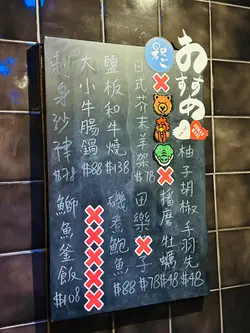 おすすめ
柚子胡椒手羽先
$48
播磨牡蠣
$48
日式芥末羊架
$78
田樂
子
$78
鹽板和牛燒
$138
磯煮鮑魚
$88
大小牛腸鍋
$88
刺身沙律
$78
鰤魚釜飯
$108